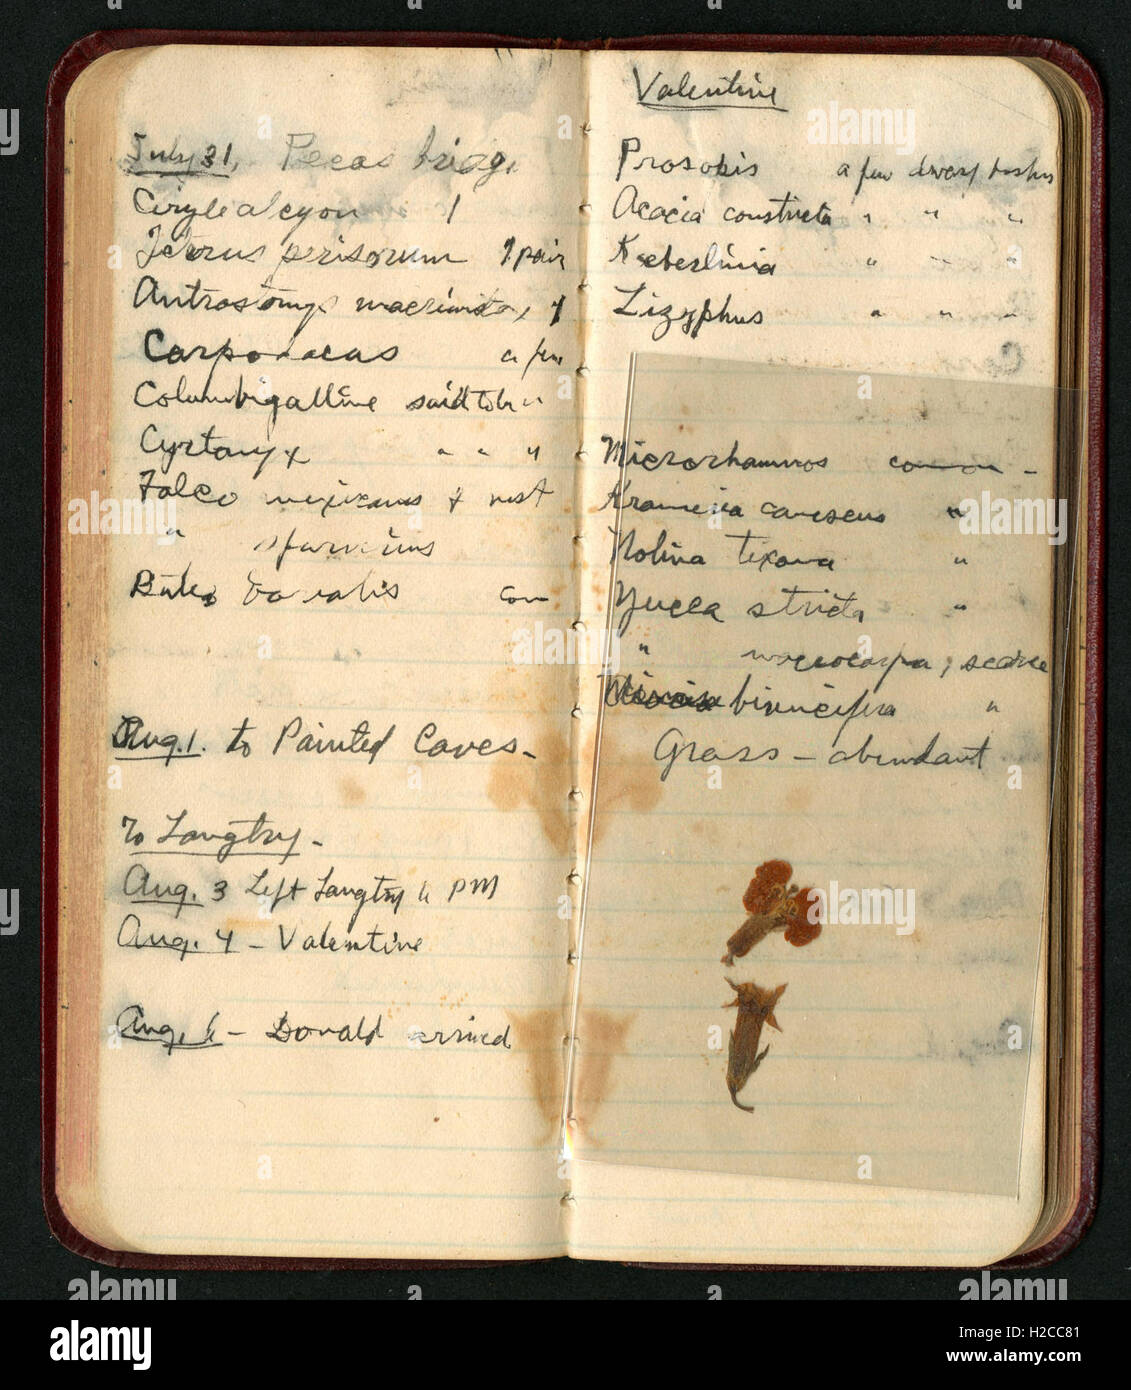 July 31, Pecos bridg.
Ciryle alcyon 1
Icterus parisorum 1 pair
Antrostomys
Carpodacus a few
Columbigalline said to be "
Cyrtonyx " " "
Falco mexicanus & nest
" sparverius
Buteo borealis com
Aug. 1. to Painted Caves-
To Langtry-
Aug. 3 Left Langtry 6 PM
Aug. 4 - Valentine
Aug. 6 - Donald arrived
Valentine
Prosopis a few dwarf bushes
Acacia constricta " " "
Keberlinia " " "
Lizyphus " " "
Microrhamnos common -
Krameria canesens "
Nolina texana "
Yucca stricta "
" macrocarpa, scarce
binucifera "
Grass - abundant
alamy
Image ID: H2CC81
www.alamy.com